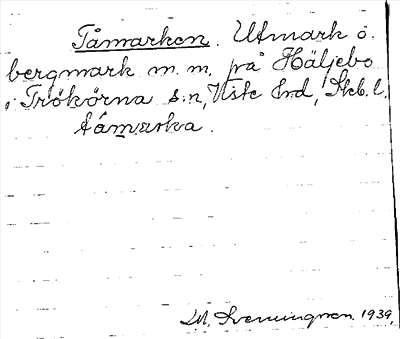 Tåmarken. Utmark o.
bergmark m.m. på Häljebo
i Trökörna s:n, Viste hrd, Skb. l.
tåmarka.
M. Svenningson. 1939.